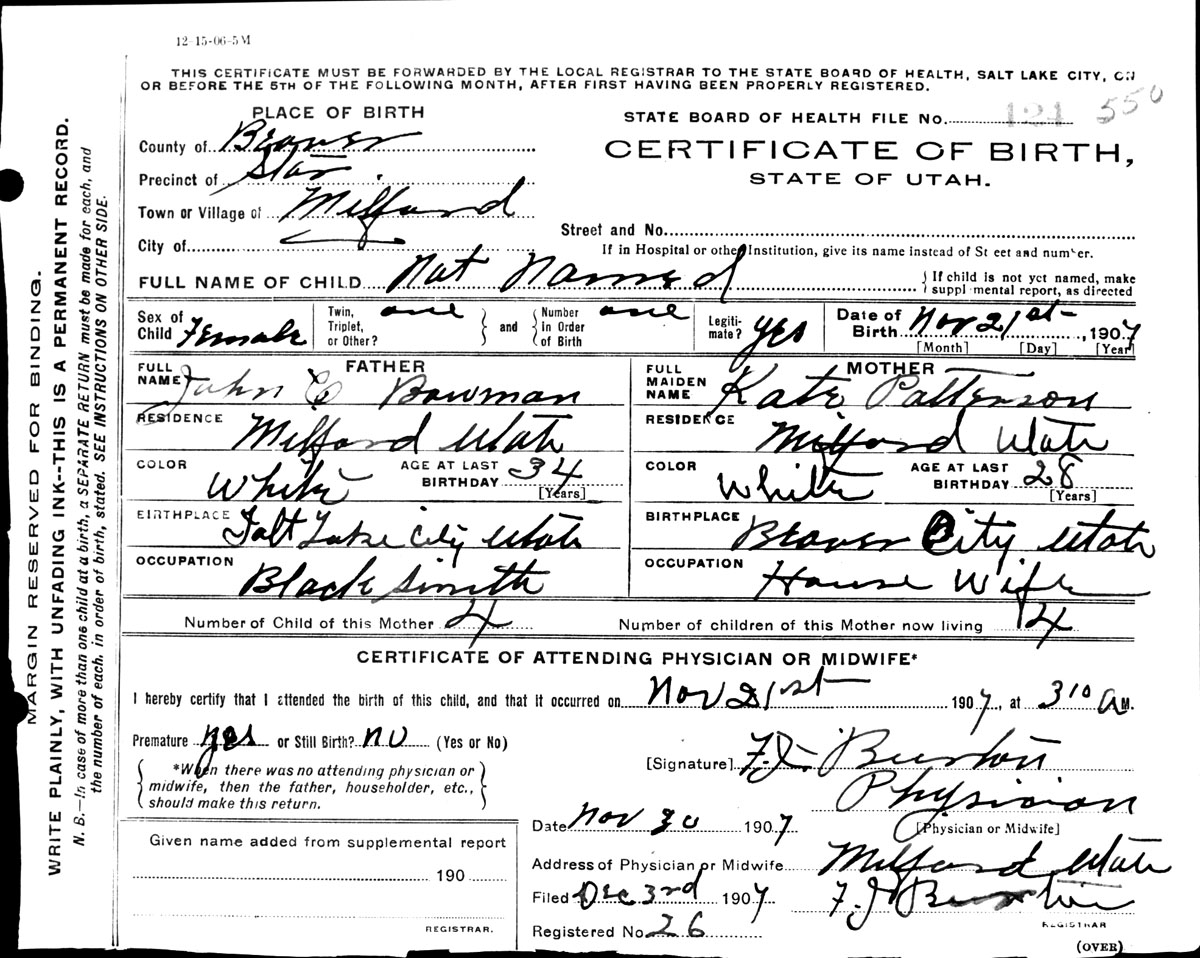 12-15-06-5M
THIS CERTIFICATE MUST BE FORWARDED BY THE LOCAL REGISTRAR TO THE STATE BOARD OF HEALTH, SALT LAKE CITY, ON
OR BEFORE THE 5TH OF THE FOLLOWING MONTH, AFTER FIRST HAVING BEEN PROPERLY REGISTERED.
PLACE OF BIRTH
STATE BOARD OF HEALTH FILE No. 121 550
County of Beaver
CERTIFICATE OF BIRTH,
Precinct of Star
STATE OF UTAH.
Town or Village of Milford
Street and No.
City of
If in Hospital or other Institution, give its name instead of St eet and number.
FULL NAME OF CHILD Not Named
If child is not yet named, make
suppl mental report, as directed
Sex of Child Female
Twin, Triplet, or Other? one
and
Number in Order of Birth one
Legiti-mate? yes
Date of Birth Nov 21st, 1907
[Month] [Day] [Year]
FATHER
FULL NAME John C Bowman
RESIDENCE Milford Utah
COLOR White
AGE AT LAST BIRTHDAY 34
[Years]
BIRTHPLACE Salt Lake City Utah
OCCUPATION Black Smith
MOTHER
FULL MAIDEN NAME Kate Patterson
RESIDENCE Milford Utah
COLOR White
AGE AT LAST BIRTHDAY 28
[Years]
BIRTHPLACE Beaver City Utah
OCCUPATION House Wife
Number of Child of this Mother 4
Number of children of this Mother now living 4
CERTIFICATE OF ATTENDING PHYSICIAN OR MIDWIFE*
I hereby certify that I attended the birth of this child, and that it occurred on Nov 21st 1907, at 3 10 A M.
Premature yes or Still Birth? no (Yes or No)
*When there was no attending physician or
midwife, then the father, householder, etc.,
should make this return.
[Signature] F.J. Burton
Physician
[Physician or Midwife]
Date Nov 30 1907
Address of Physician or Midwife Milford Utah
Filed Dec 3rd 1907 F J Burton
REGISTRAR
Registered No. 26
(OVER)
Given name added from supplemental report
190
REGISTRAR.
MARGIN RESERVED FOR BINDING.
WRITE PLAINLY, WITH UNFADING INK--THIS IS A PERMANENT RECORD.
N. B.—In case of more than one child at a birth, a SEPARATE RETURN must be made for each, and
the number of each, in order of birth, stated. SEE INSTRUCTIONS ON OTHER SIDE.